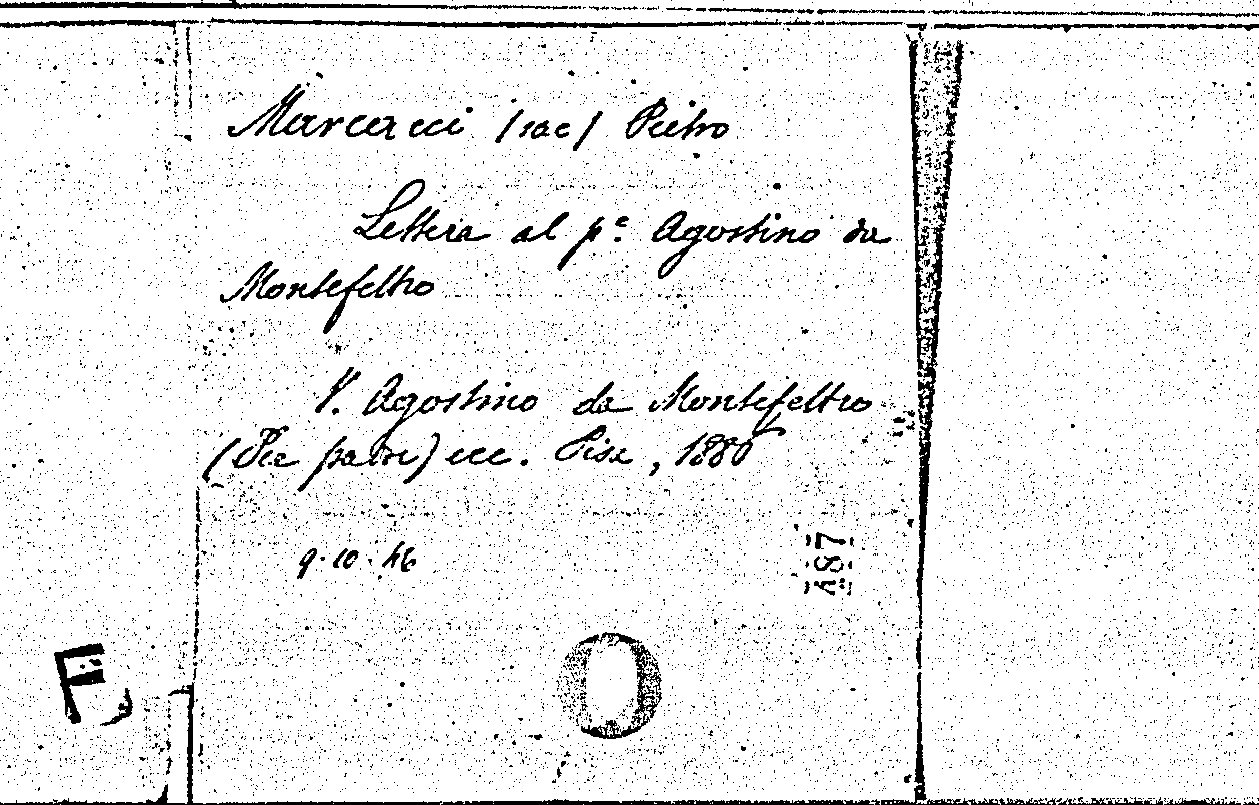 Marcacci (sac) Pietro
Lettera al p.e Agostino da
Montefeltro
V. Agostino da Montefeltro
(Pel padre) ecc. Pisa, 1880
9.10.46
487
F